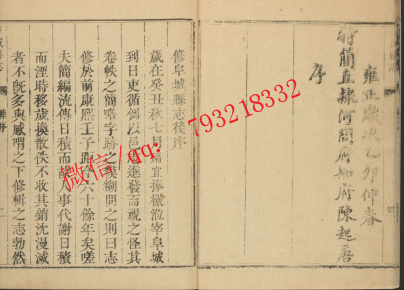 雍正歲次乙卯仲春
特簡直隸河間府知府陳起居
序
修阜城縣志後序
歲在癸丑秋七月福宜捧檄涖宰阜城
到日東循例以邑志進發而視之怪其
卷帙之簡略字跡之糢糊問之則曰志
修於前康熙壬子距今六十餘年矣嗟
夫簡編流傳日積而人事代謝日積
而湮時移歲換散佚不收其銷沈漫滅
者不旣多與感喟之下修輯之志勃然
微信/qq：793218332